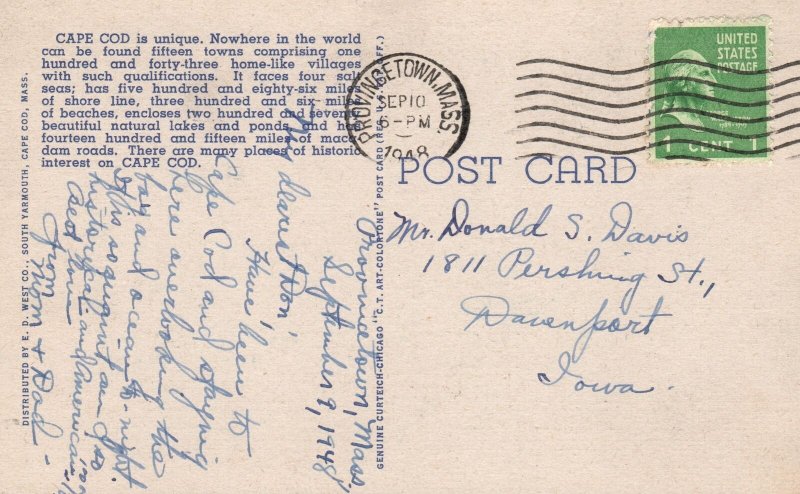 CAPE COD is unique. Nowhere in the world
can be found fifteen towns comprising one
hundred and forty-three home-like villages
with such qualifications. It faces four sal
seas; has five hundred and eighty-six miles
of shore line, three hundred and six miles
of beaches, encloses two hundred and seven
beautiful natural lakes and ponds and ha
fourteen hundred and fifteen miles of maca
dam roads. There are many places of historic
interest on CAPE COD.
DISTRIBUTED BY E. D. WEST CO., SOUTH YARMOUTH, CAPE COD, MASS.
GENUINE CURTEICH-CHICAGO "C.T. ART-COLORTONE" POST CARD (REG. U.S. PAT. OFF.)
PROVINCETOWN, MASS.
SEP 10
6-PM
1948
UNITED
STATES
POSTAGE
1 CENT 1
POST CARD
Mr. Donald S. Davis
1811 Pershing St.,
Davenport
Iowa.
Provincetown, Mass.
September 9, 1948
My dearest Don,
Have been to
Cape Cod and staying
here overlooking the
bay and ocean to-night
It is so quaint and so
historical and American
Best love
from
Mom & Dad -